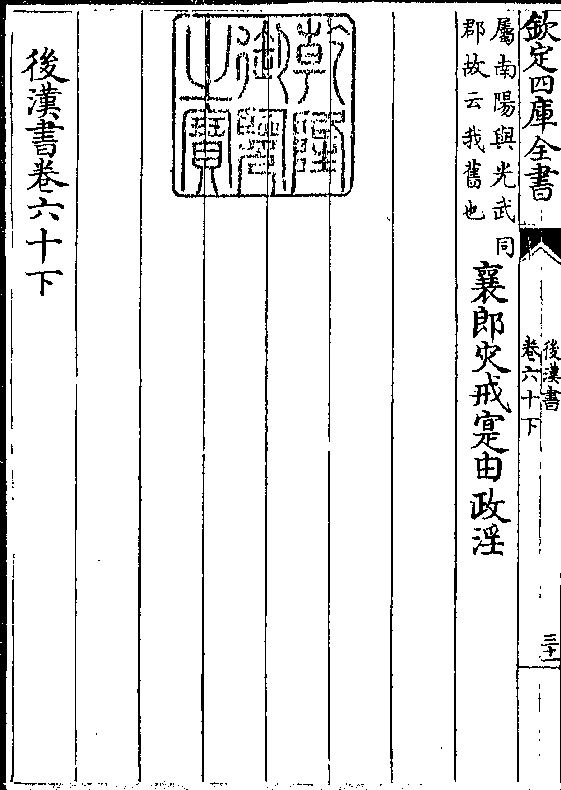 欽定四庫全書
後漢書
卷六十下
三十一
屬南陽與光武同
郡故云我舊也
襄郎災戒寔由政淫
乾隆御覽之寶
後漢書卷六十下